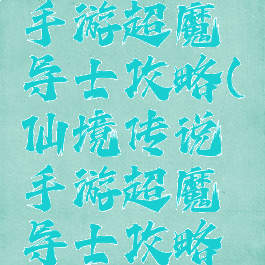 手游超魔
导士攻略(
仙境传说
手游超魔
导士攻略